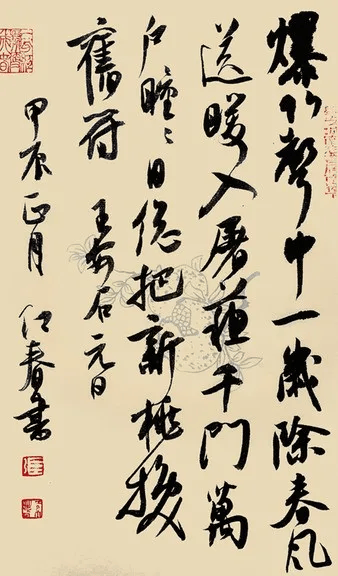 爆竹聲中一歲除春风
送暖入屠蘇千門萬
户曈〻日總把新桃換
舊符 王安石元日
甲辰正月 春書